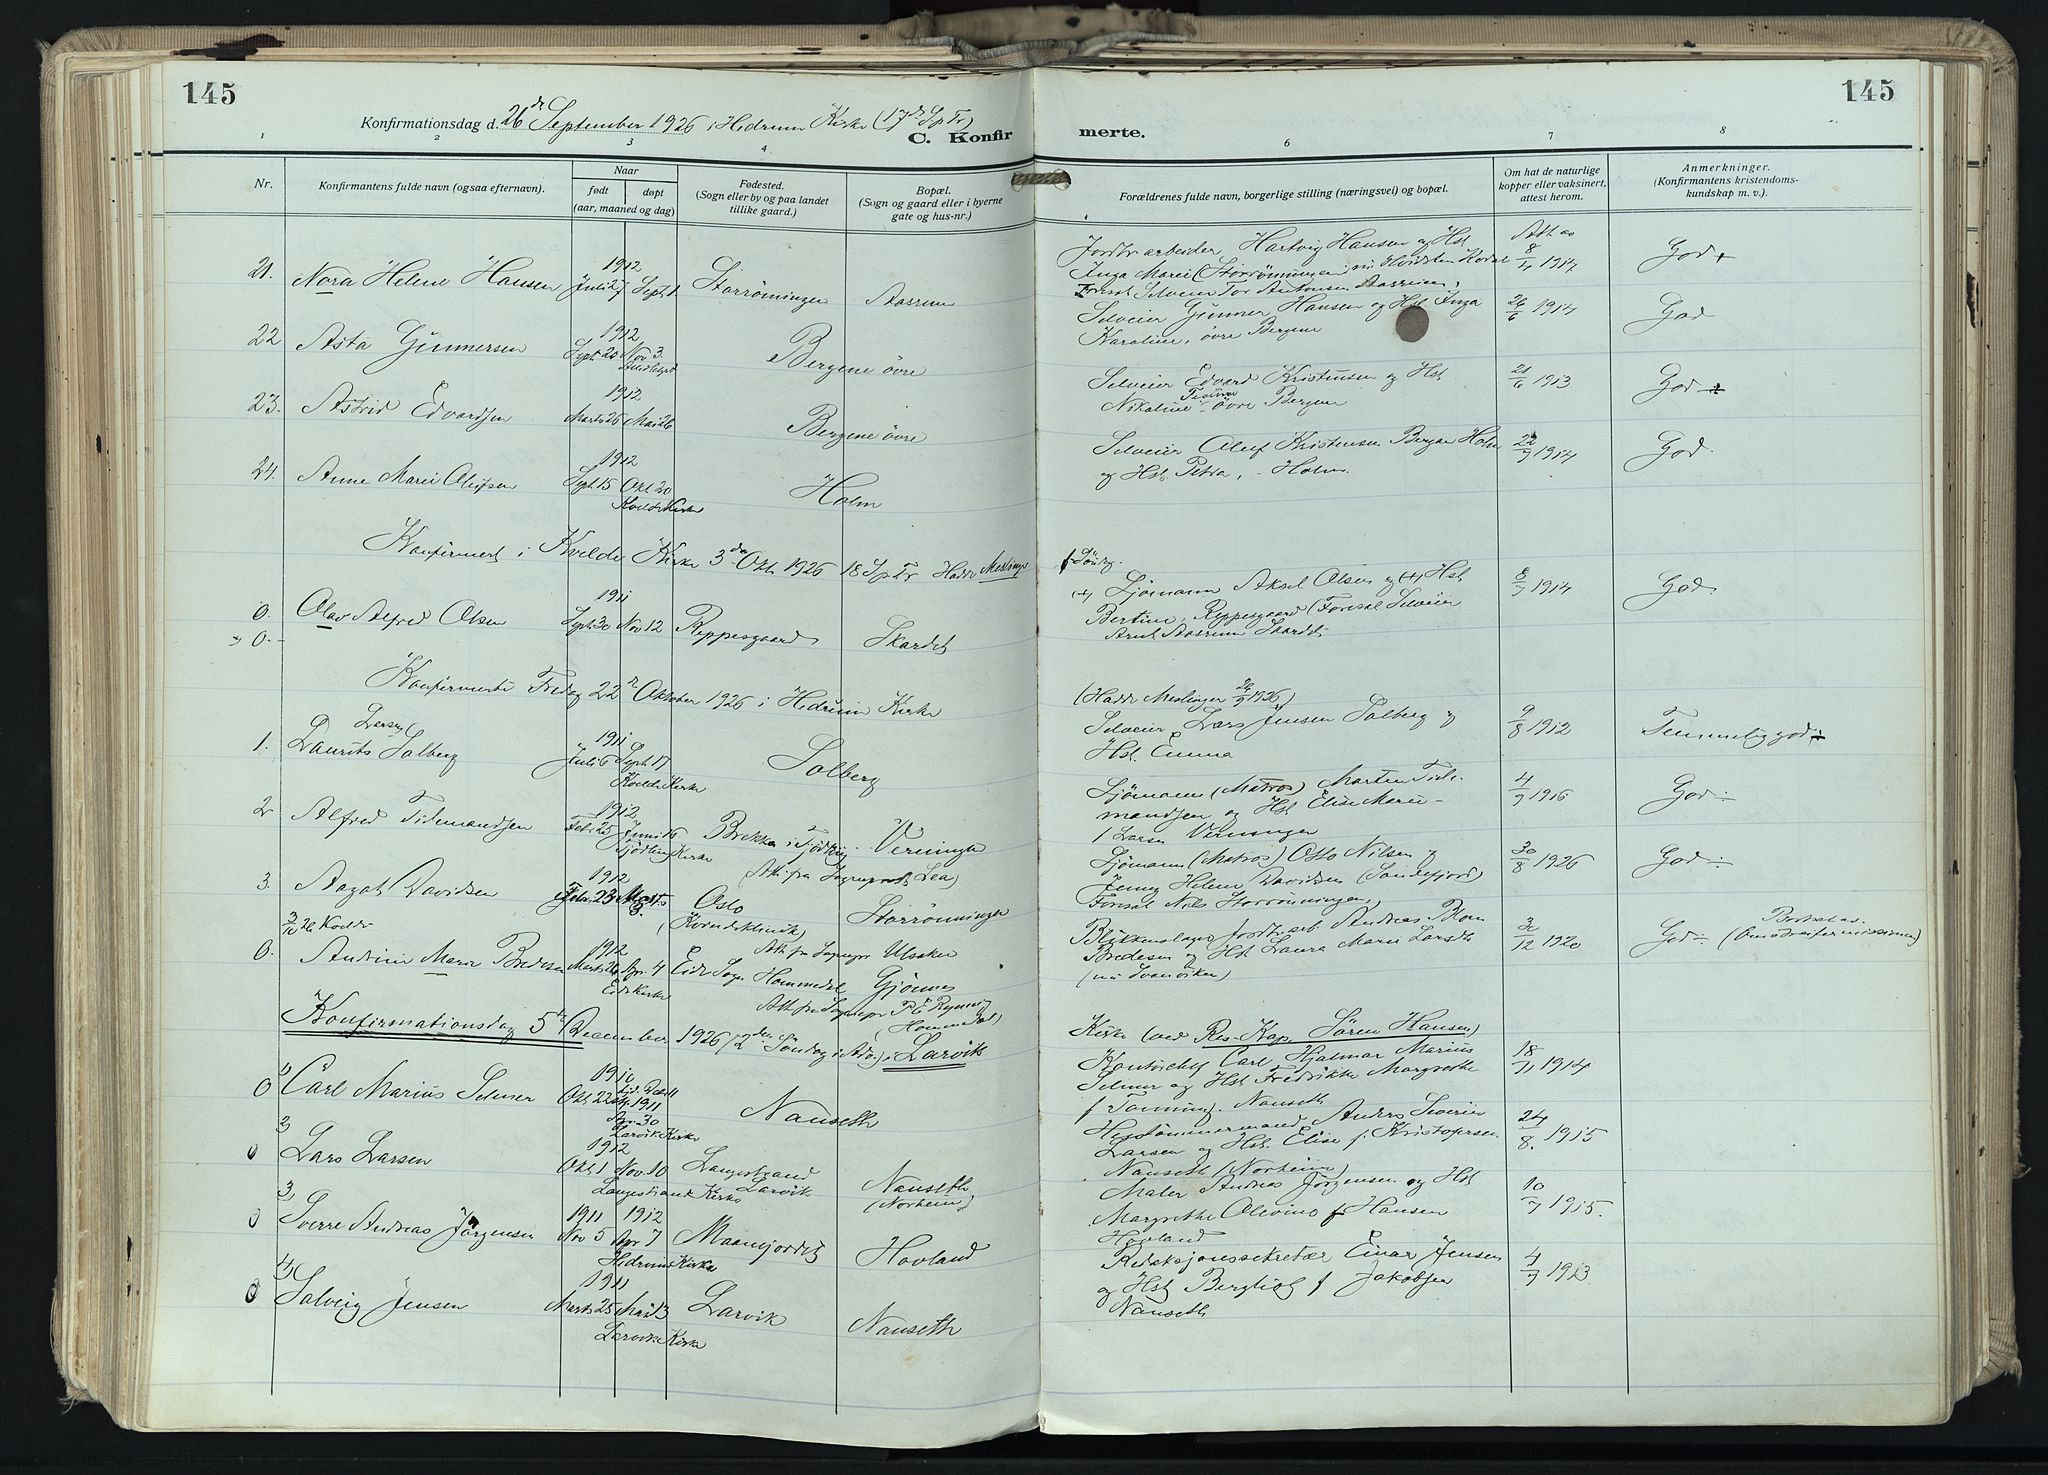 145
145
Konfirmationsdag d. 26de September 1926 i Hedrum Kirke (17de S p Tr)
C. Konfir merte.
1 2 3 4 6 7 8
Nr.
Konfirmantens fulde navn (ogsaa efternavn).
Naar
født
døpt
(aar, maaned og dag)
Fødested.
(Sogn eller by og paa landet
tillike gaard.)
Bopæl.
(Sogn og gaard eller i byerne
gate og hus-nr.)
Forældrenes fulde navn, borgerlige stilling (næringsvei) og bopæl.
Om hat de naturlige
kopper eller vaksinert,
attest herom.
Anmerkninger.
(Konfirmantens kristendoms-
kundskap m. v.).
21. Nora Helene Hansen 1912 Juli 27 Sept 1 Storrönningen Aasrum
Jordbrarbeider Hartvig Hansen og Hst
Inga Marie (Storrönningen) nu Hvidsten Kodal
Foresat Selveier Tor Antonsen Aasrum,
Att av 8/4 1914 God +
22 Asta Gunnersen 1912 Sept 20 Nov 3. Bergene övre
Selveier Gunner Hansen og Hst Inga
Karoline, övre Bergene
26/6 1914 God
23. Astrid Edvardsen 1912 Marts 26 Mai 26 Bergene övre
Selveier Edvard Kristensen og Hst
Nikoline övre Bergene
21/6 1913 God
24. Anne Marie Olufsen 1912 Sept 15 Okt 20 Kvelde Kirke Holm
Selveier Oluf Kristensen Bergan Holm
og Hst. Petra, - Holm.
22/9 1914 God.
Konfirmert i Kvelde Kirke 3de Okt. 1926 18 S p Tr Hadde Meslinger
f. Sönd.
0. Olav Alfred Olsen 1911 Sept 30 Nov 12 Reppesgaard Skardet
0.-
(+) Sjömann Aksel Olsen og (+) Hst
Bertine, Reppesgaard (Foresat Selveier
Arnt Aasrum Skardet
8/9 1914 God
Konfirmerte Fredag 22de Oktober 1926 i Hedrum Kirke
(Hadde Meslinger 26/9 1926)
1. Laurits Larsen Solberg 1911 Juli 6 Sept 17 Kvelde Kirke Solberg
Selveier Lars Jensen Solberg og
Hst. Emma
9/8 1912 Temmelig god
2 Alfred Tidemandsen 1912 Feb. 25 Juni 16 Tjödling Kirke Brekke i Tjödling Verninge
Sjömann (Matros) Marten Tide-
mandsen og Hst Elise Marie
f Larsen Verningen
4/9 1916 God
(Att. fra Sognepr Lea)
3. Aagot Davidsen 1912 Febr. 23 Marts 3. Oslo Storrönningen
(Kvindeklinik)
Sjömann (Matros) Otto Nilsen og
Jenny Helene Davidsen (Sandefjord)
Foresat Nils Storrönningen,
30/8 1926 God
0. Andrine Marie Bredesen 1912 Marts 26 Apr. 4 Eide Kirke Eide Sogn Hommedal Gjönnes
Att fra Sognepr Ulsaker
Att fra Sognepr (Hommedal)
Blikkenslager Jordbr arb Andreas Blom
Bredesen og Hst Laura Marie Larsdtr
(nu Svanviken)
3/12 1920 God (Omstreifermissionen)
Konfirmationsdag 5te December 1926 (2den Söndag i Adv.) i Larvik
Kirke (ved Res. Kap. Sören Hansen)
1) 0 Carl Marius Selmer 1910 Okt. 22 1911 Apr 30 Larvik Kirke Nanseth
Kontorchef Carl Hjalmar Marius
Selmer og Hst Fredrikke Margrethe
f Tönning. Nanseth
18/9 1914
2) 0 Lars Larsen 1912 Okt. 1 Nov. 10 Langestrand Larvik Nanseth
Langestrand Kirke (Norheim)
Hustömmermand Anders Severin
Larsen og Hst. Elise f. Kristofersen
Nanseth (Norheim)
24/8. 1915
3) 0 Sverre Andreas Jörgensen 1911 Nov 5 1912 Apr 7 Hedrum Kirke Maanejordet Hovland
Maler Andreas Jörgensen og Hst
Margrethe Olivine f Hansen
Hovland
10/9 1915.
4) 0 Solveig Jensen 1911 Marts 25 Mai 13 Larvik Kirke Larvik Nanseth
Redaksjonssekretær Einar Jensen
og Hst Bergliot f Jakobsen
Nanseth
4/9 1913.